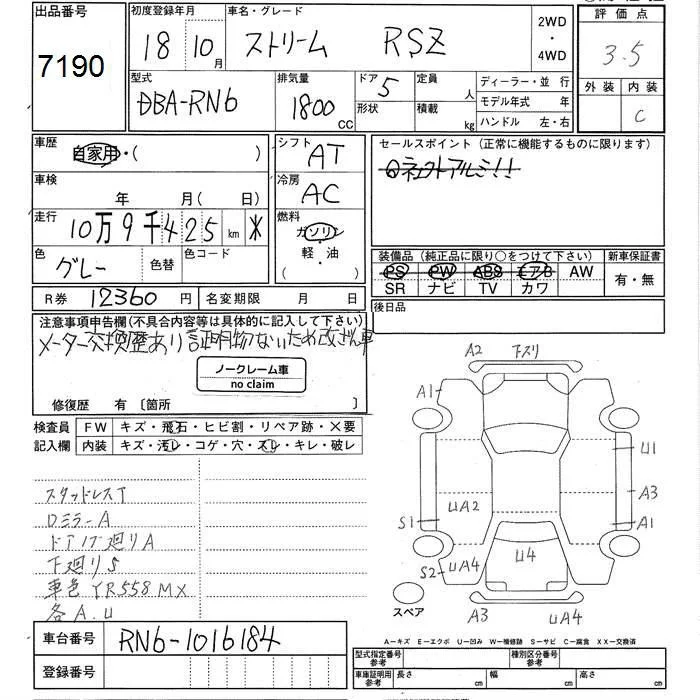 出品番号 初度登録年月 車名・グレード 2WD 評価点
7190 18 年 10 月 ストリーム RSZ ・ 4WD 3.5
型式 排気量 ドア 5 定員 人 ディーラー・並 行 外装 内装
DBA-RN6 1800 CC 形状 積載 kg モデル年式 年 C
ハンドル 左・右
車歴 自家用・( ) シフト AT セールスポイント (正常に機能するものに限ります)
車検 年 月(日) 冷房 AC
走行 10万9千425 km ※ 燃料 ガソリン
色 グレー 色替 色コード 軽・油 ( )
装備品 (純正品に限り○をつけて下さい) 新車保証書
PS PW ABS エアB AW 有・無
SR ナビ TV カワ
R券 12360 円 名変期限 月 日 後日品
注意事項申告欄(不具合内容等は具体的に記入して下さい)
メーター交換歴あり 証明物ないため改ざん車
ノークレーム車
no claim
修復歴 有 〔箇所 〕
検査員 FW キズ・飛石・ヒビ割・リペア跡・X要
記入欄 内装 キズ・汚レ・コゲ・穴・スレ・キレ・破レ
スタッドレスT
Dミラー A
ドアノブ廻りA
下廻りS
車色 YR558MX
各A.U
A2 下スリ
A1
U1
A3
UA2
S1 A1
U4
S2 UA4
スペア A3 UA4
A-キズ E-エクボ U-凹み W-補修跡 S-サビ C-腐食 XX-交換済
車台番号 RN6-1016184
登録番号
型式指定番号 参考 種別区分番号 参考
車庫証明用 参考 長さ cm 幅 cm 高さ cm